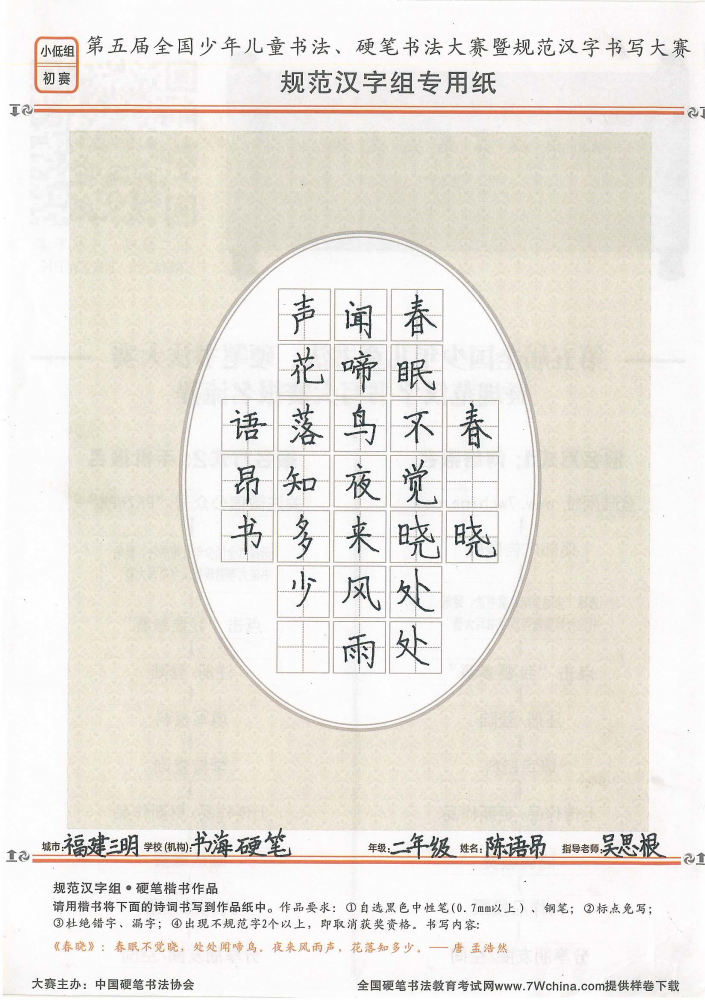 小低组
初赛
第五届全国少年儿童书法、硬笔书法大赛暨规范汉字书写大赛
规范汉字组专用纸
春晓
春眠不觉晓处处
闻啼鸟夜来风雨
声花落知多少
语昂书
城市:福建三明 学校(机构):书海硬笔 年级:二年级 姓名:陈语昂 指导老师:吴思根
规范汉字组•硬笔楷书作品
请用楷书将下面的诗词书写到作品纸中。作品要求：①自选黑色中性笔(0.7mm以上)、钢笔；②标点免写；
③杜绝错字、漏字；④出现不规范字2个以上，即取消获奖资格。书写内容：
《春晓》：春眠不觉晓，处处闻啼鸟。夜来风雨声，花落知多少。——唐 孟浩然
大赛主办：中国硬笔书法协会
全国硬笔书法教育考试网www.7Wchina.com提供样卷下载